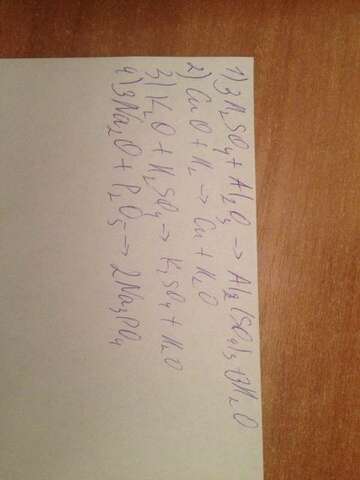 1) 3H₂SO₄ + Al₂O₃ → Al₂(SO₄)₃ + 3H₂O
2) CuO + H₂ → Cu + H₂O
3) K₂O + H₂SO₄ → K₂SO₄ + H₂O
4) 3Na₂O + P₂O₅ → 2Na₃PO₄